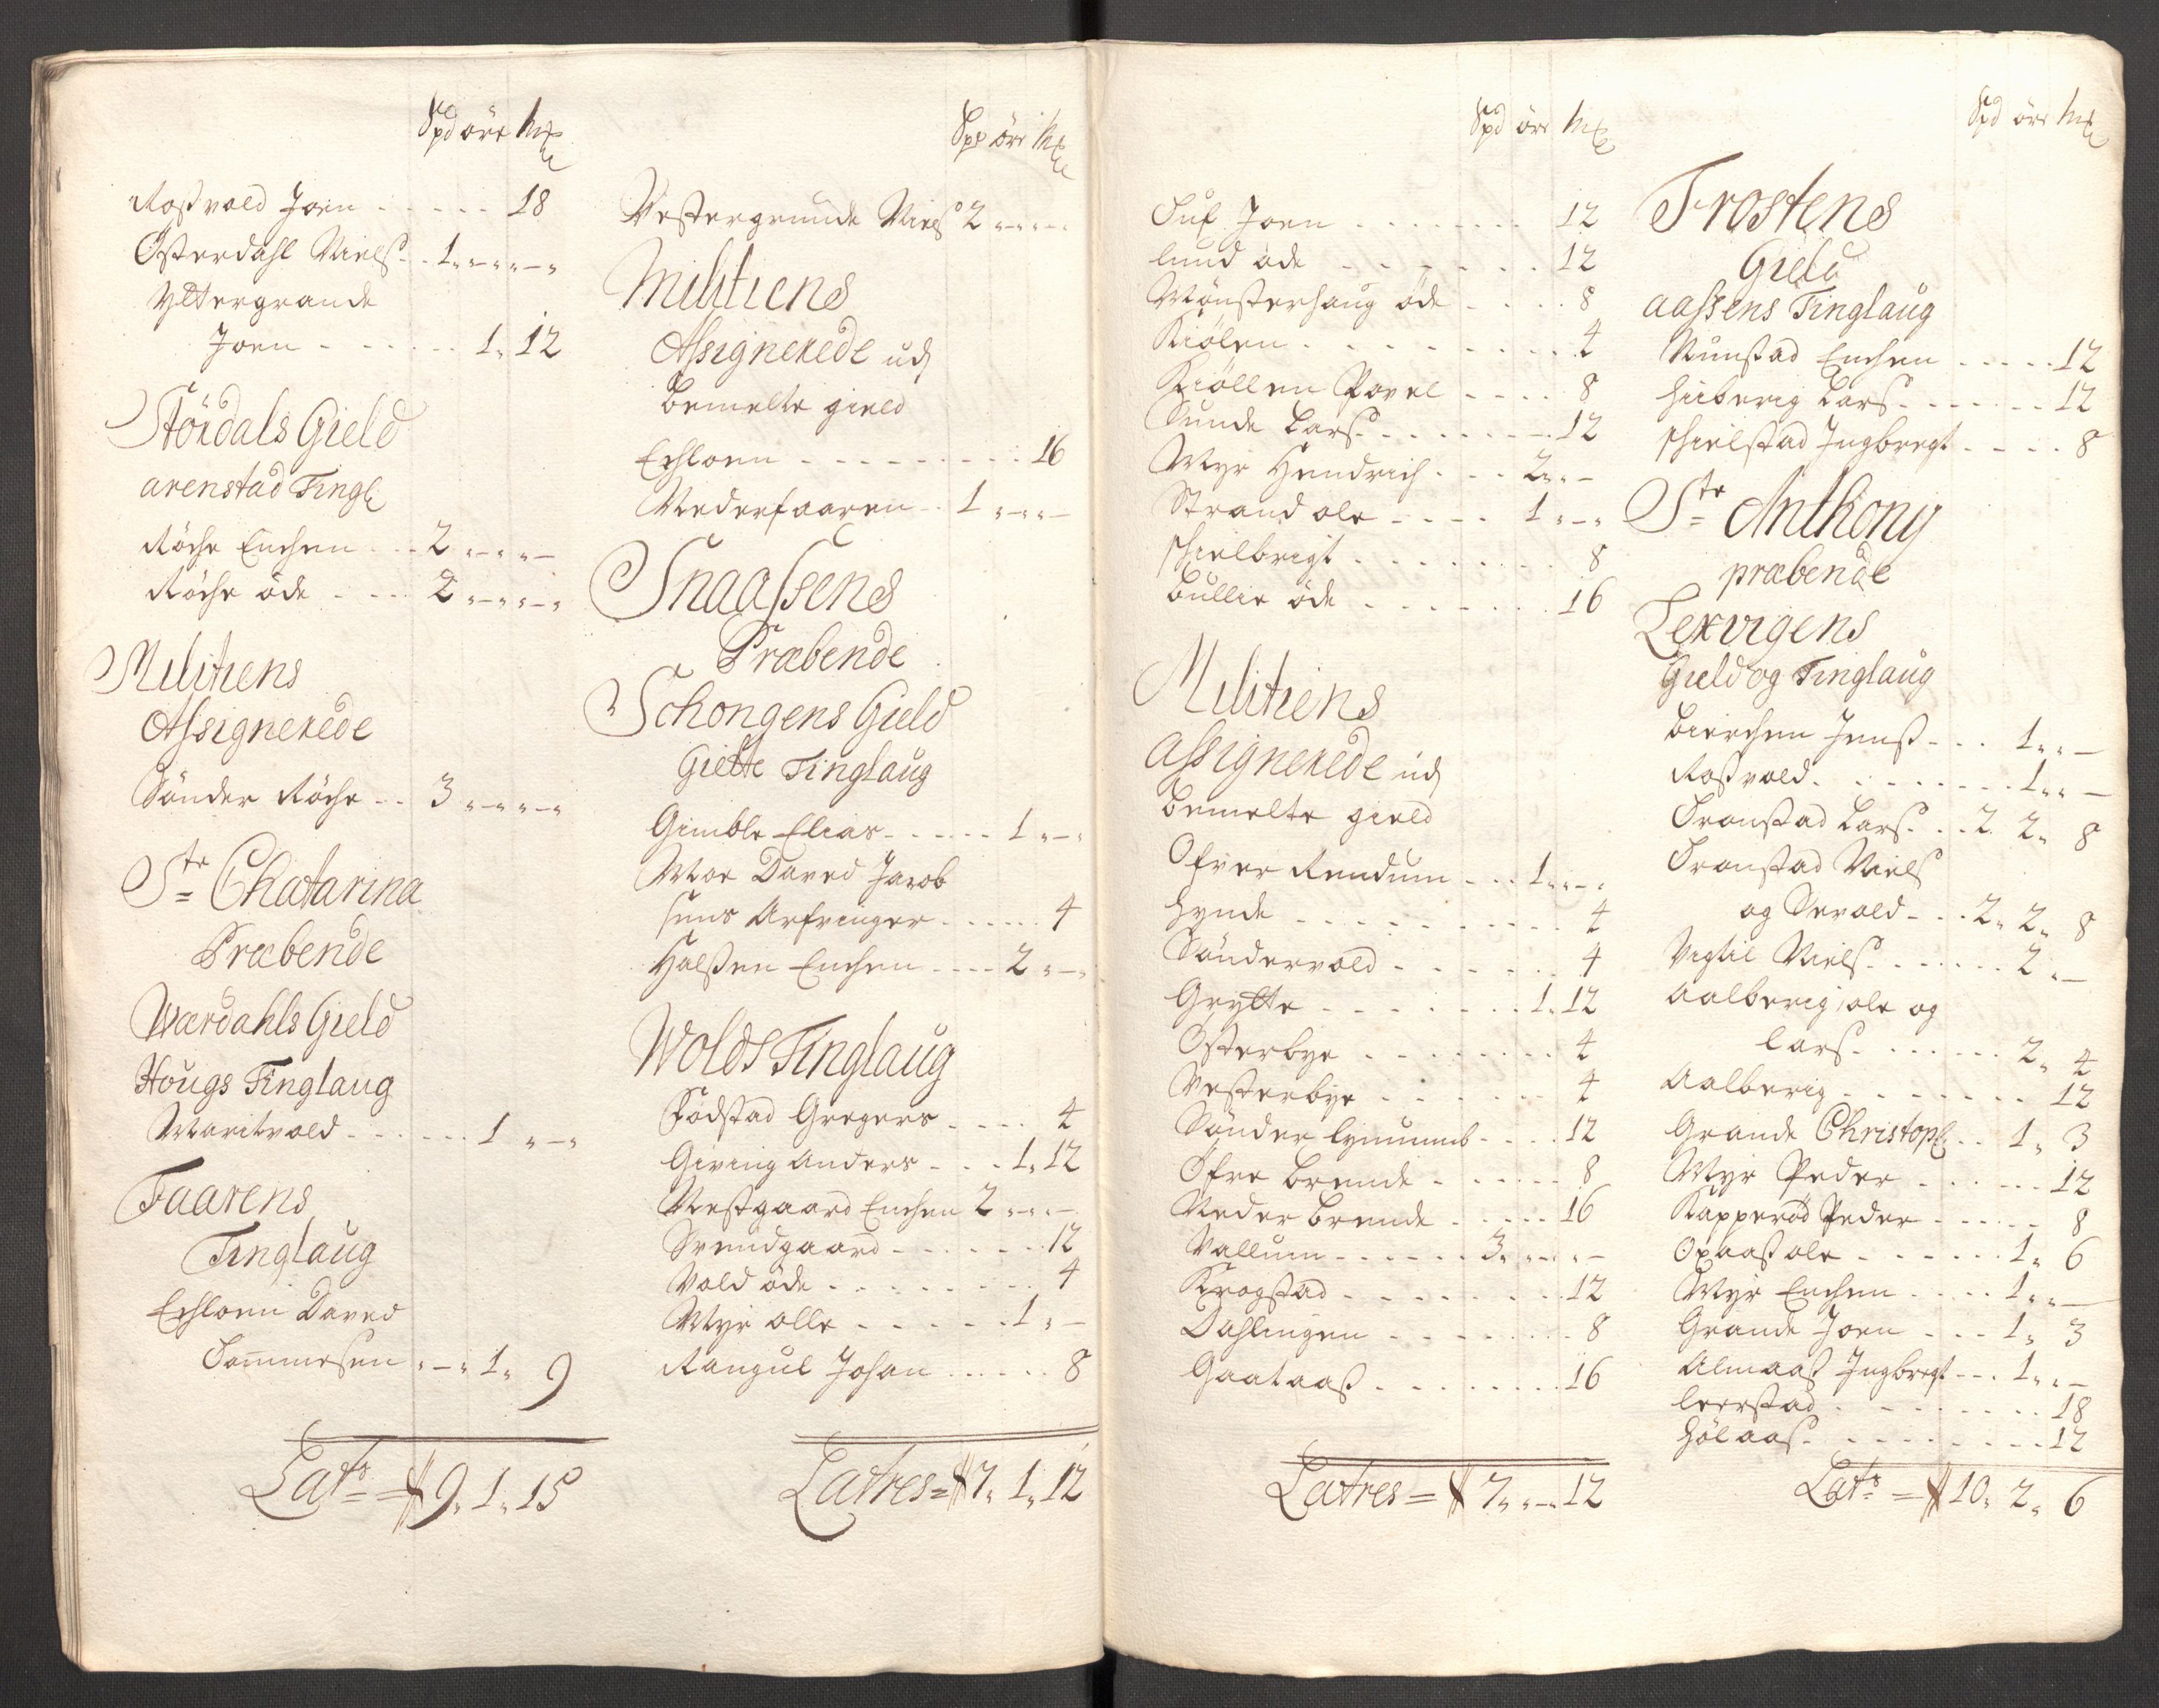 Spd öre mk
Roßvold Joen - - - - - 18
Österdahl Niels - . 1 „ - „ - „
Yttergrande
Joen - - - - - - 1 „ 12
Stördals Gield
arenstad Tingl
Röche Enchen - - 2 „ - „ -
Röche öde - - - 2 „ - „ - „
Militiens
Assignerede
Sönder Röche - - 3 „ - „ - „
Ste Chatarina
Præbende
Wærdahls Gield
Hougs Tinglaug
Maritvold - - - - - - 1 „ - „
Faarens
Tinglaug
Echloen Daved
Tommesen „ - „ 1 „ 9
Lats = 9 „ 1 „ 15
Spd öre mk
Vestergrunde Niels 2 „ - „ -
Militiens
Assignerede ud
bemelte gield
Echloen - - - - - - - - 16
Nederfaaren - . 1 „ - „ -
Snaassens
Præbende
Schongens Gield
Giette Tinglaug
Gimble Elias - - - - - 1 „ - „
Moe Daved Jacob
sens Arfvinger - - - - - 4
Halßen Enchen - - - - 2 „ - „
Wolds Tinglaug
Fodstad Gregers - - - - 4
Giving Anders - - - 1 „ 12
Nestgaard Enchen 2 „ - „ -
Svendgaard - - - - - - 12
Vold öde - - - - - - - - 4
Myr olle - - - - - - 1 „ -
Rangul Johan - - - - - 8
Latres = 7 „ 1 „ 12
Spd öre mk
Suul Joen - - - - - - - - 12
lund öde - - - - - - - 12
Mönsterhaug öde - - - - 8
Kiölen - - - - - - - - - 4
Kiöllen Povel - - - - 8
Sunde Lars - - - - - - - 12
Myr Hendrich - - - 2 „ „ -
Strand ole - - - - 1 „ - „
schielbrigt - - - - - - - - 8
bullie öde - - - - - - - 16
Militiens
assignerede ud
bemelte gield
Ofver Rendum - - - 1 „ - „
hynde - - - - - - - - - 4
Söndervold - - - - - - 4
Grytte - - - - - - - 1 „ 12
Österbye - - - - - - - - 4
Vesterbye - - - - - - - 4
Sönder - - - - 12
Öfre brende - - - - - 8
Neder brende - - - - - 16
Vallum - - - - - - 3 „ - „ -
Krogstad - - - - - - - - 12
Dahlingen - - - - - - - 8
Gaataas - - - - - - - - 16
Latres = 7 „ „ - „ 12
Spd öre mk
Frostens
Gield
aassens Tinglaug
Nunstad Enchen - - - - - 12
huberig Lars - - - - - - 12
schielstad Ingbregt - - - - 8
Ste Anthony
præbende
Lexvigens
Gield og Tinglaug
bierchen Jens - - - 1 „ „ -
Roßvold - - - - - - - - 1 „ „ -
Tronstad Lars - - 2 „ 2 „ 8
Tronstad Niels
og Sevold - - - 2 „ 2 „ 8
Vigtil Niels - - - - - - 2 „ -
aalberig ole og
lars - - - - - - - 2 „ 4
aalberig - - - - - - - - 12
Grande Christoph - - 1 „ 3
Myr Peder - - - - - - 12
Kapperød Peder - - - - - 8
Opaas ole - - - - - - 1 „ 6
Myr Enchen - - - - - 1 „ „ -
Grande Joen - - - 1 „ 3
Almaas Ingbregt - - - 1 „ „ -
leerstad - - - - - - - - 18
hölaas - - - - - - - - - 12
Lats = 10 „ 2 „ 6